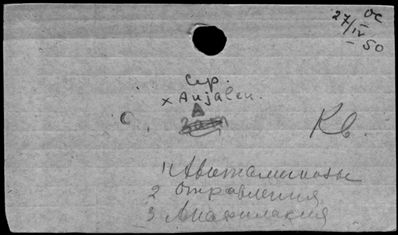 ОС
27/IV
50
Сер.
× Anjalen.
А
С.
Кв.
1) Авитаминозы
2 Отравления
3 Анафилаксия